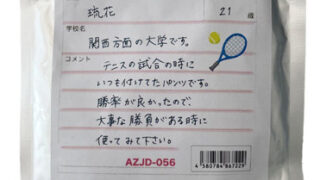 琉花 21 歳
学校名
関西方面の大学です。
コメント
テニスの試合の時に
いつも付けてたパンツです。
勝率が良かったので、
大事な勝負がある時に
使ってみて下さい。
AZJD-056
4580784867229